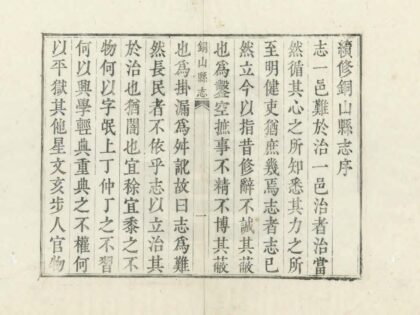 續修銅山縣志序
志一邑難於治一邑治者治當
然循其心之所知悉其力之所
至明健吏猶庶幾焉志者志已
然立今以指昔修辭不誠其蔽
也爲鑿空摭事不精不博其蔽
銅山縣志
一
也爲掛漏爲舛訛故曰志爲難
然長民者不依乎志以立治其
於治也猶闇也宜稌宜黍之不
物何以字氓上丁仲丁之不習
何以興學輕典重典之不權何
以平獄其他星文亥步人官物